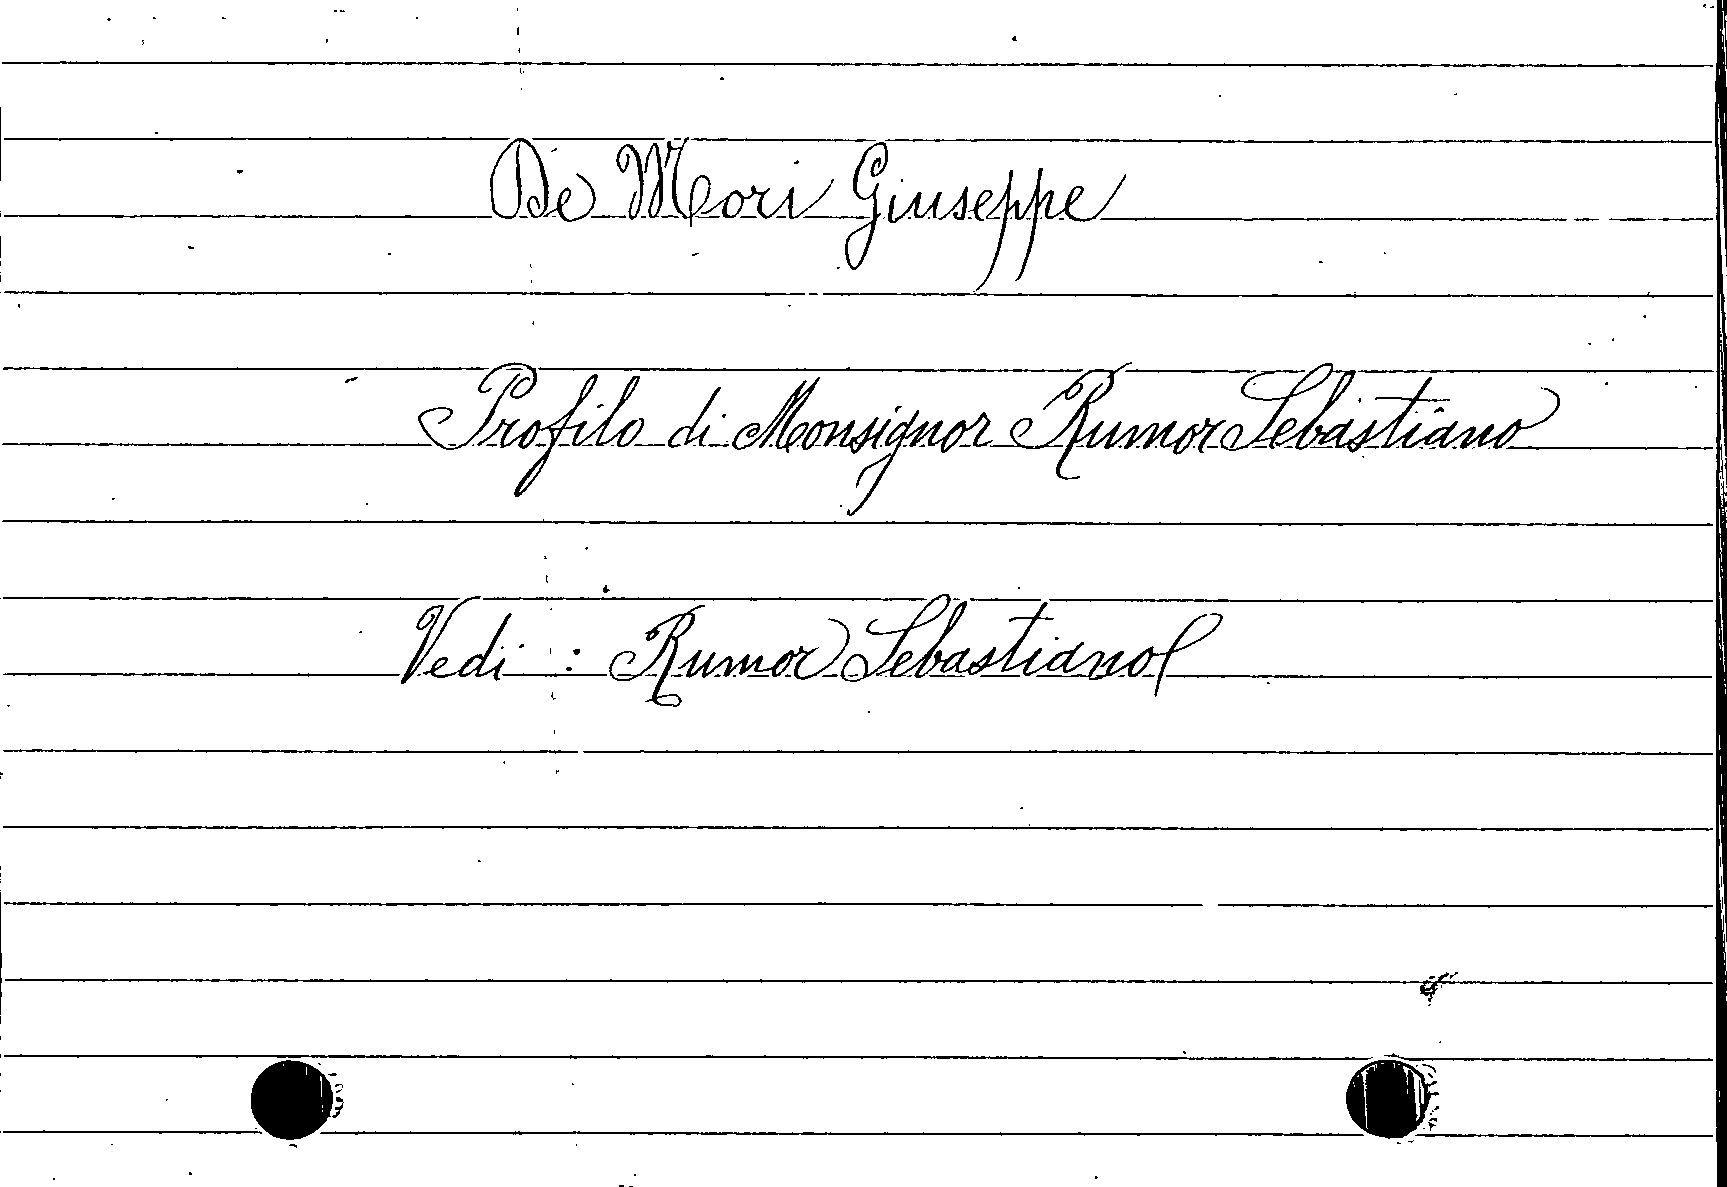 De Mori Giuseppe
Profilo di Monsignor Rumor Sebastiano
Vedi : Rumor Sebastiano